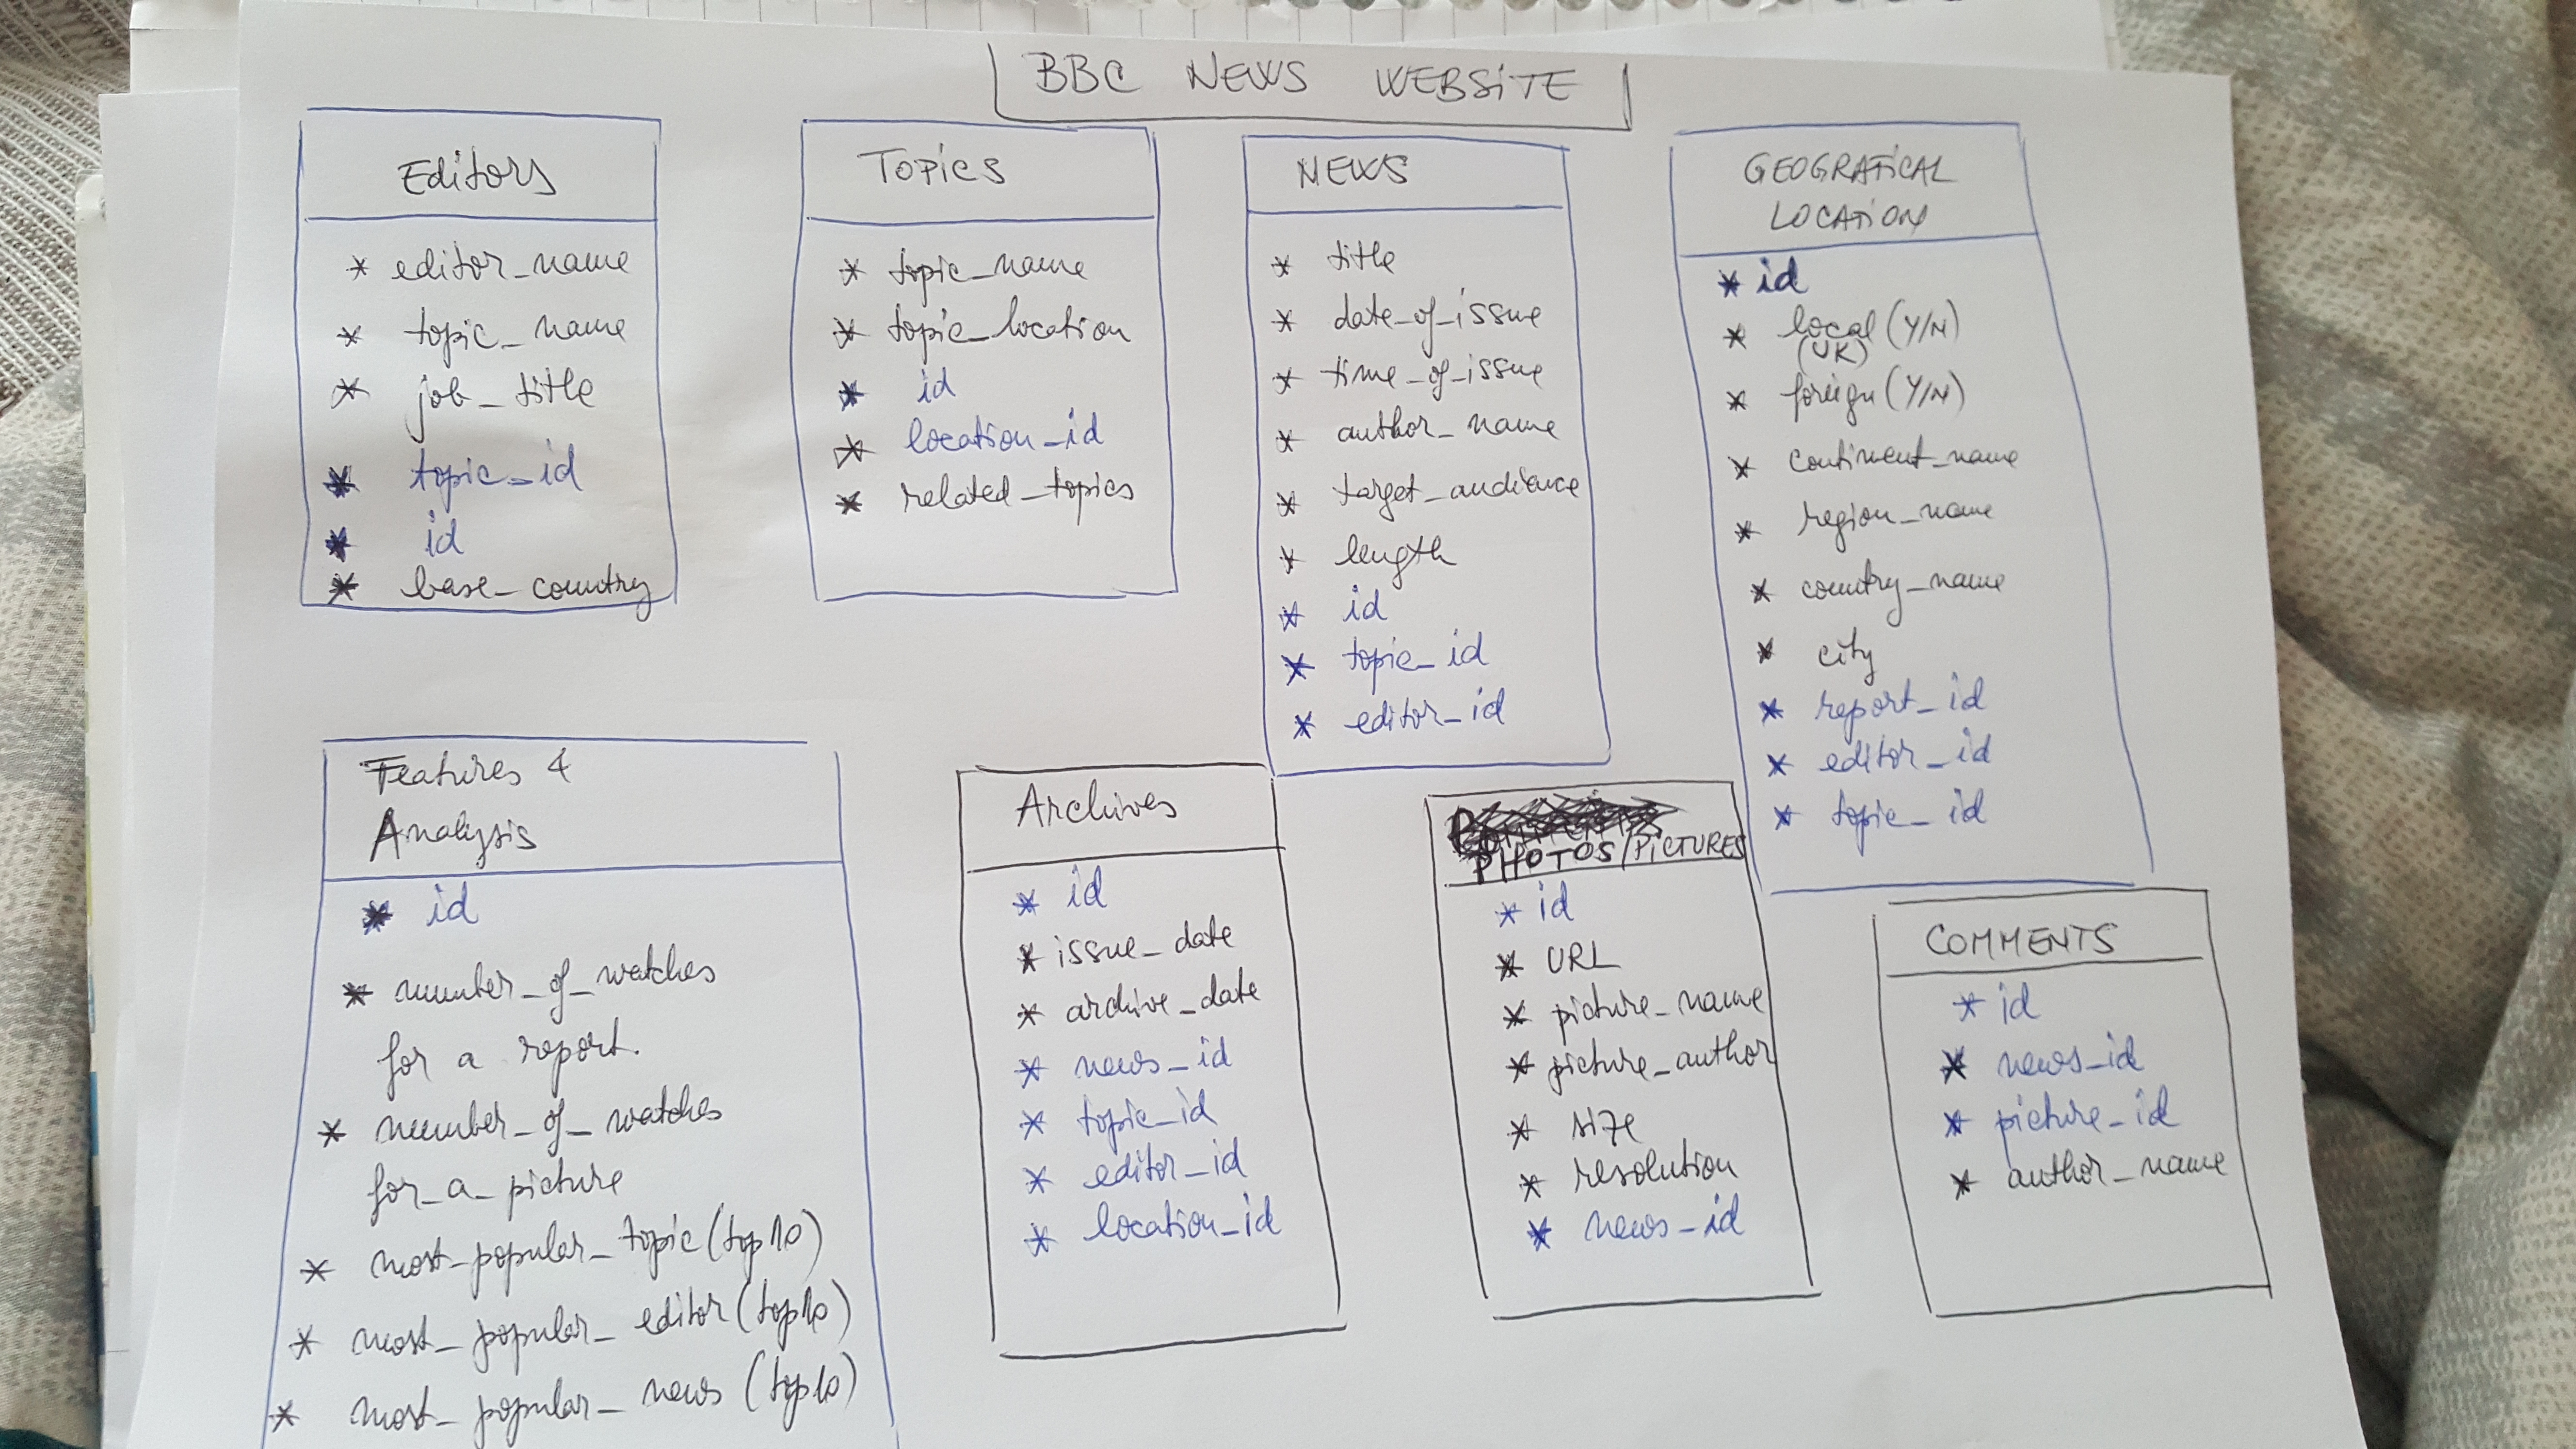 BBC NEWS WEBSITE
Editors
* editor_name
* topic_name
* job_title
* topic_id
* id
* base_country
TOPICS
* topic_name
* topic_location
* id
* location_id
* related_topics
NEWS
* title
* date_of_issue
* time_of_issue
* author_name
* target_audience
* length
* id
* topic_id
* editor_id
GEOGRAFICAL
LOCATION
* id
* local (Y/N)
(UK)
* foreign (Y/N)
* continent_name
* region_name
* country_name
* city
* report_id
* editor_id
* topic_id
Features &
Analysis
* id
* number_of_watches
for a report.
* number_of_watches
for_a_picture
* most_popular_topic (top10)
* most_popular_editor (top10)
* most_popular_news (top10)
Archives
* id
* issue_date
* archive_date
* news_id
* topic_id
* editor_id
* location_id
PHOTOS/PICTURES
* id
* URL
* picture_name
* picture_author
* size
* resolution
* news_id
COMMENTS
* id
* news_id
* picture_id
* author_name